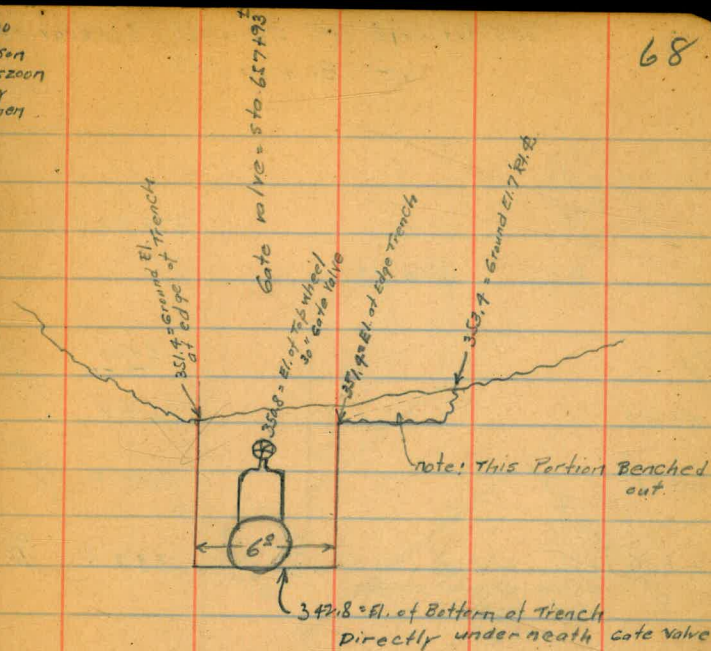 68
Gate valve = Sta 657+93 ±
351.4 = Ground El.
at edge of Trench
350.8 = El. of Top wheel
30" Gate Valve
351.4 = El. at Edge Trench
353.4 = Ground El. 7' Rt. ⅊
note: This Portion Benched
out.
6⁰
342.8 = El. of Bottom of Trench
Directly underneath Gate Valve